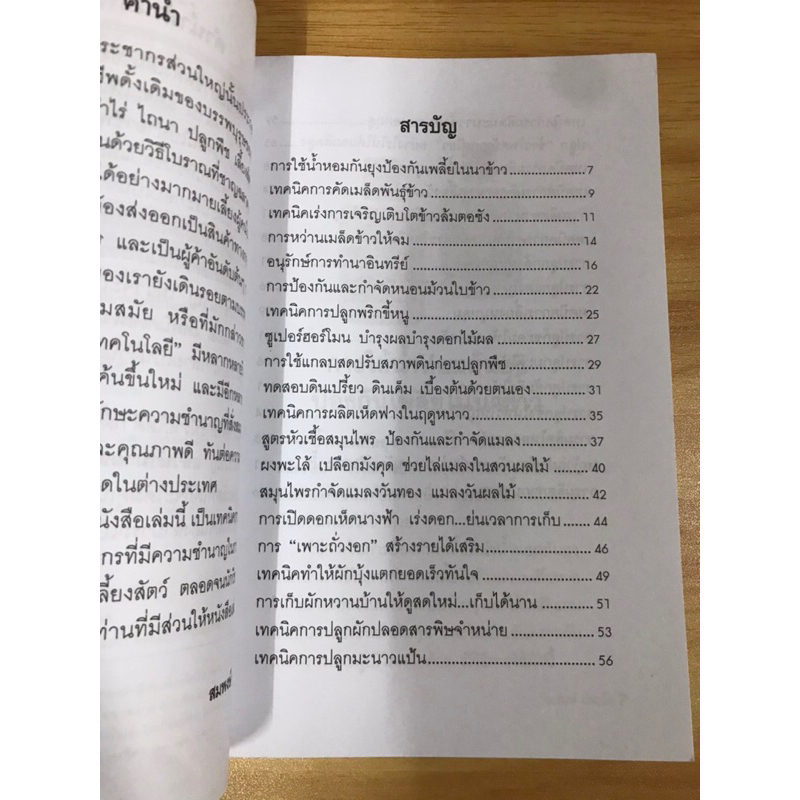 คำนำ
ระชากรส่วนใหญ่นั้น
ชีพดั้งเดิมของบรรพบุรุษ
ทำไร่ ไถนา ปลูกพืช เลี้ยง
นด้วยวิธีโบราณที่
ได้อย่างมากมายเลี้ยง
ต้องส่งออกเป็นสินค้า
และเป็นผู้ค้าอันดับต้น
ของเรายังเดินรอยตาม
มสมัย หรือที่มักกล่าว
ทคโนโลยี" มีหลากหลาย
ค้นขึ้นใหม่ และมีอีก
ักษะความชำนาญที่สั่งสม
ละคุณภาพดี ทันต่อความ
ดในต่างประเทศ
นังสือเล่มนี้ เป็นเทคนิค
กรที่มีความชำนาญใน
ลี้ยงสัตว์ ตลอดจนนัก
ท่านที่มีส่วนให้หนังสือ
สมพงษ์
สารบัญ
การใช้น้ำหอมกันยุงป้องกันเพลี้ยในนาข้าว....................7
เทคนิคการคัดเมล็ดพันธุ์ข้าว....................9
เทคนิคเร่งการเจริญเติบโตข้าวล้มตอซัง....................11
การหว่านเมล็ดข้าวให้จม....................14
อนุรักษ์การทำนาอินทรีย์....................16
การป้องกันและกำจัดหนอนม้วนใบข้าว....................22
เทคนิคการปลูกพริกขี้หนู....................25
ซูเปอร์ฮอร์โมน บำรุงผลบำรุงดอกไม้ผล....................27
การใช้แกลบสดปรับสภาพดินก่อนปลูกพืช....................29
ทดสอบดินเปรี้ยว ดินเค็ม เบื้องต้นด้วยตนเอง....................31
เทคนิคการผลิตเห็ดฟางในฤดูหนาว....................35
สูตรหัวเชื้อสมุนไพร ป้องกันและกำจัดแมลง....................37
ผงพะโล้ เปลือกมังคุด ช่วยไล่แมลงในสวนผลไม้....................40
สมุนไพรกำจัดแมลงวันทอง แมลงวันผลไม้....................42
การเปิดดอกเห็ดนางฟ้า เร่งดอก...ย่นเวลาการเก็บ.......44
การ "เพาะถั่วงอก" สร้างรายได้เสริม....................46
เทคนิคทำให้ผักบุ้งแตกยอดเร็วทันใจ....................49
การเก็บผักหวานบ้านให้ดูสดใหม่...เก็บได้นาน....................51
เทคนิคการปลูกผักปลอดสารพิษจำหน่าย....................53
เทคนิคการปลูกมะนาวแป้น....................56